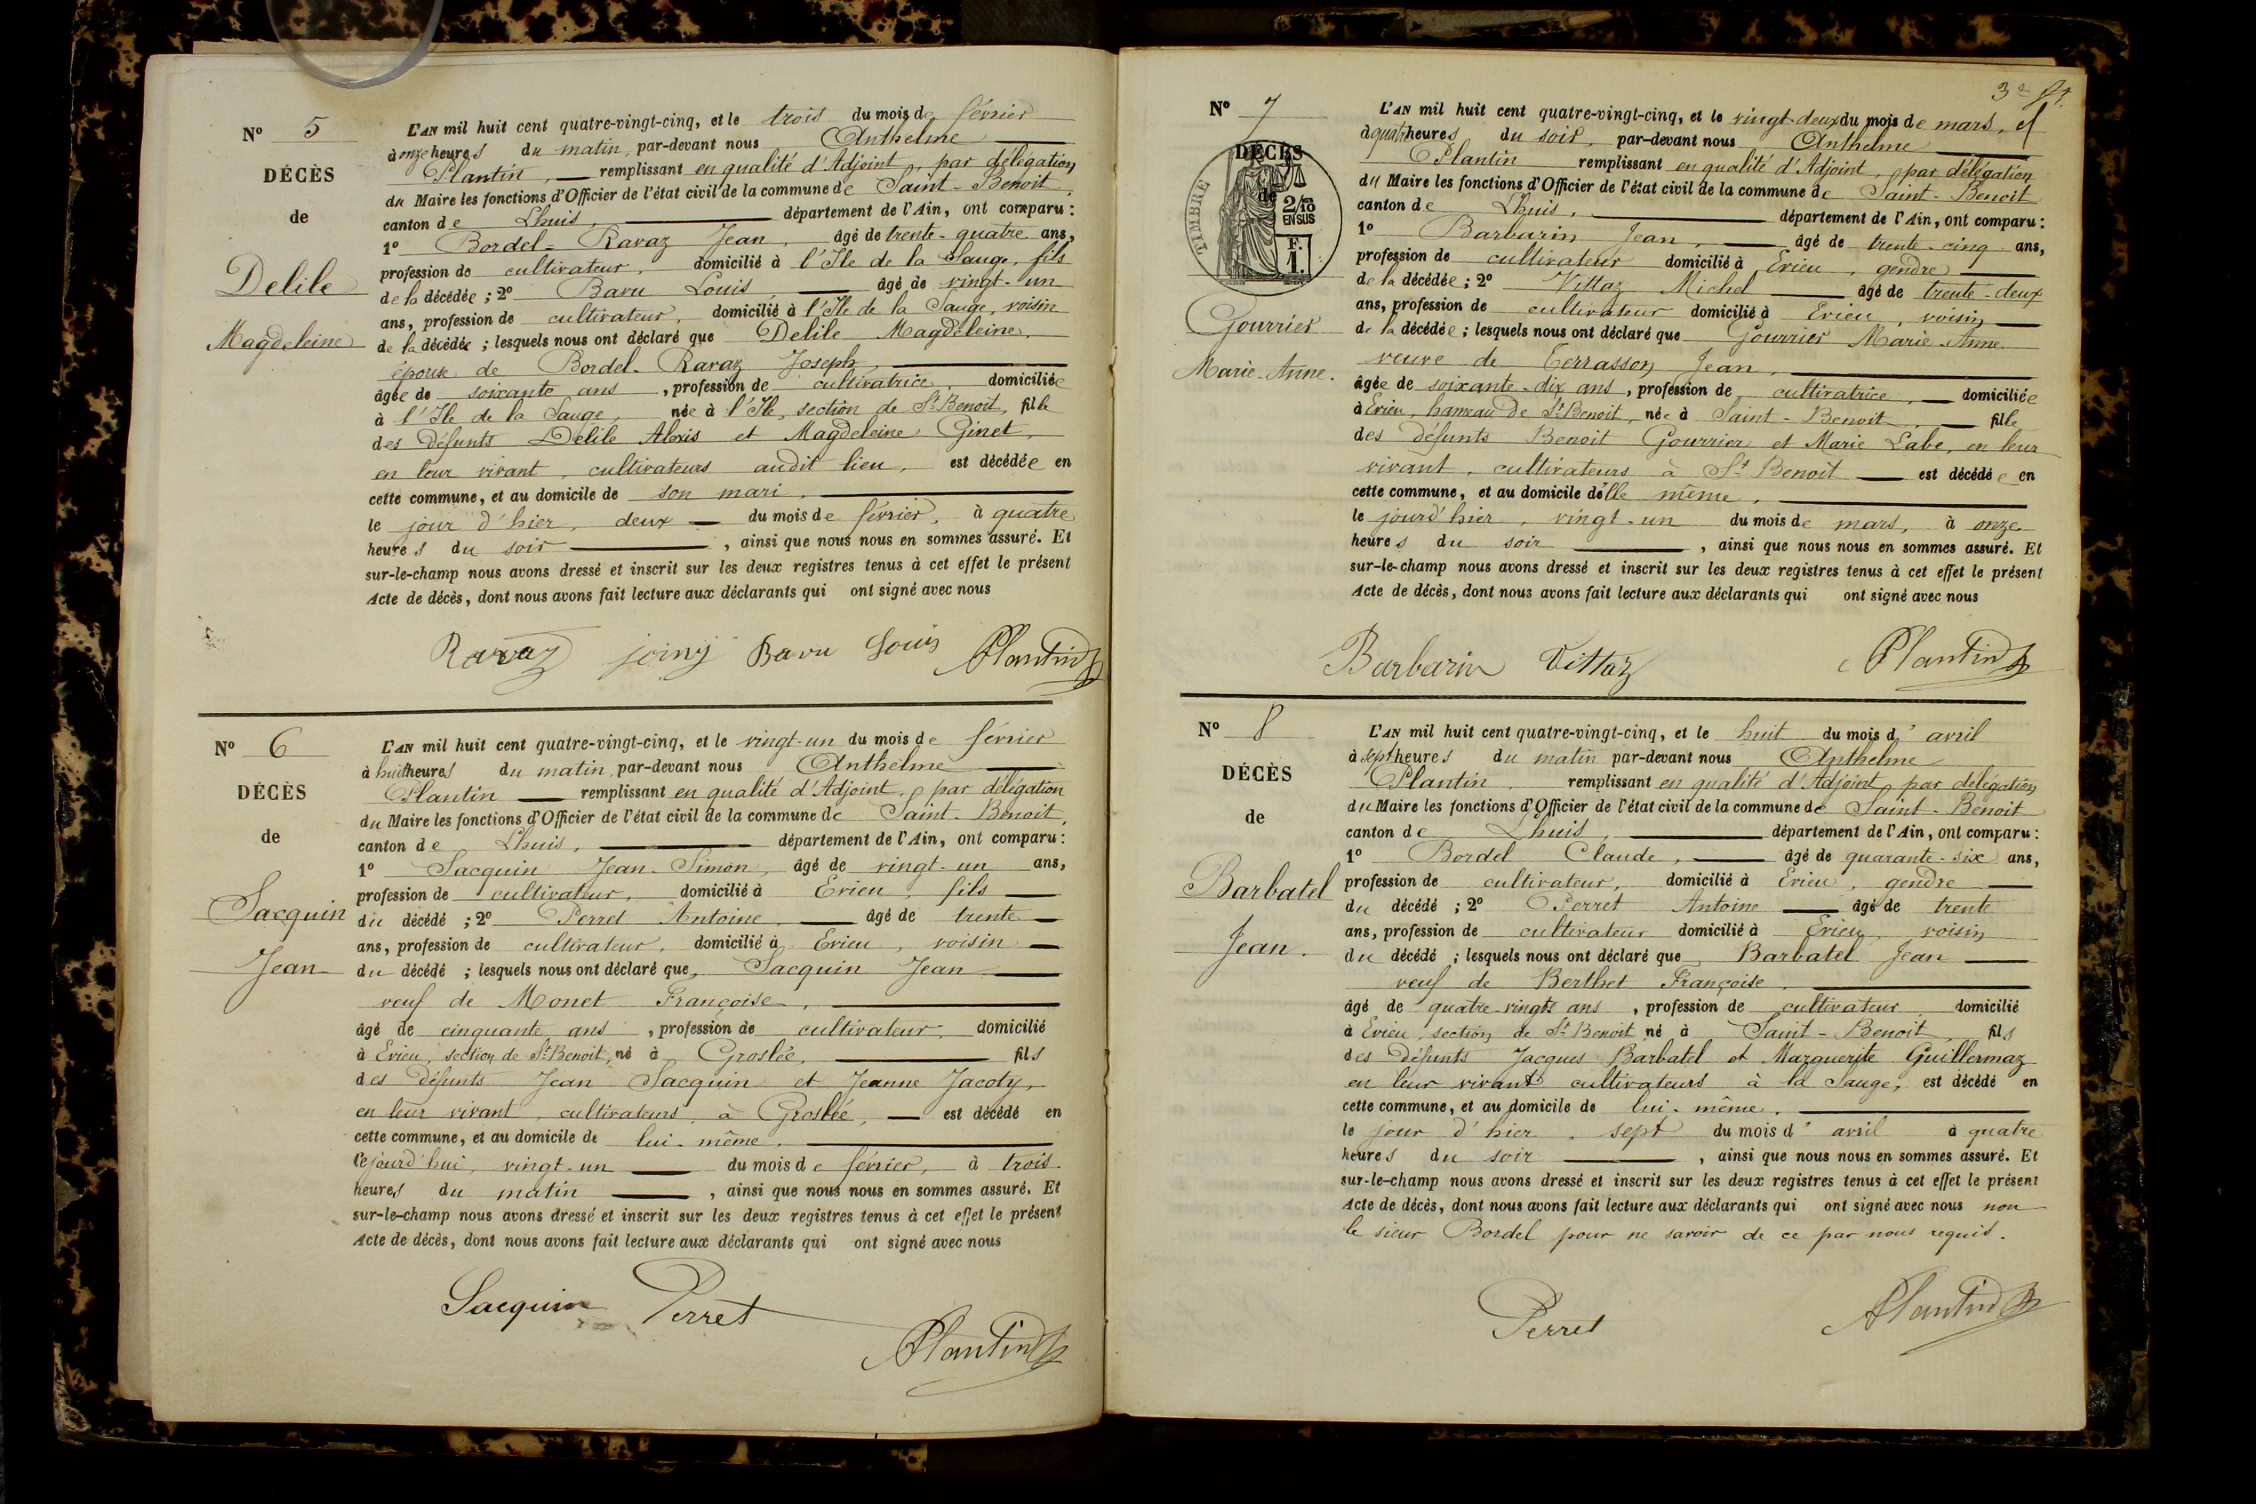 Nº 5
DÉCÈS
de
Delile
Magdeleine
L'AN mil huit cent quatre-vingt-cinq, et le trois du mois de février
à onze heures du matin, par-devant nous Anthelme
Plantin, remplissant en qualité d'Adjoint, par délégation
du Maire les fonctions d'Officier de l'état civil de la commune de Saint-Benoit,
canton de Lhuis, département de l'Ain, ont comparu :
1º Bordel-Ravaz Jean, âgé de trente-quatre ans,
profession de cultivateur, domicilié à l'Ile de la Sauge, fils
de la décédée ; 2º Bavu Louis, âgé de vingt-un
ans, profession de cultivateur, domicilié à l'Ile de la Sauge, voisin
de la décédée ; lesquels nous ont déclaré que Delile Magdeleine,
épouse de Bordel-Ravaz Joseph,
âgée de soixante ans, profession de cultivatrice, domiciliée
à l'Ile de la Sauge, née à l'Ile, section de St Benoit, fille
des défunts Delile Alexis et Magdeleine Ginet,
en leur vivant, cultivateurs audit lieu, est décédée en
cette commune, et au domicile de son mari,
le jour d'hier, deux du mois de février, à quatre
heures du soir, ainsi que nous nous en sommes assuré. Et
sur-le-champ nous avons dressé et inscrit sur les deux registres tenus à cet effet le présent
Acte de décès, dont nous avons fait lecture aux déclarants qui ont signé avec nous
Ravaz Bavu Louis Plantin
Nº 6
DÉCÈS
de
Sacquin
Jean
L'AN mil huit cent quatre-vingt-cinq, et le vingt-un du mois de février
à huit heures du matin, par-devant nous Anthelme
Plantin remplissant en qualité d'Adjoint, par délégation
du Maire les fonctions d'Officier de l'état civil de la commune de Saint-Benoit,
canton de Lhuis, département de l'Ain, ont comparu :
1º Sacquin Jean-Simon, âgé de vingt-un ans,
profession de cultivateur, domicilié à Evieu, fils
du décédé ; 2º Perret Antoine, âgé de trente
ans, profession de cultivateur, domicilié à Evieu, voisin
du décédé ; lesquels nous ont déclaré que Sacquin Jean
veuf de Monet Françoise,
âgé de cinquante ans, profession de cultivateur, domicilié
à Evieu, section de St Benoit, né à Groslée, fils
des défunts Jean Sacquin et Jeanne Jacoty,
en leur vivant, cultivateurs à Groslée, est décédé en
cette commune, et au domicile de lui-même,
Cejourd'hui, vingt-un du mois de février, à trois
heures du matin, ainsi que nous nous en sommes assuré. Et
sur-le-champ nous avons dressé et inscrit sur les deux registres tenus à cet effet le présent
Acte de décès, dont nous avons fait lecture aux déclarants qui ont signé avec nous
Sacquin Perret
Plantin
Nº 7
DÉCÈS
de
TIMBRE
2/10
EN SUS
F.
1.
Gourrier
Marie-Anne.
L'AN mil huit cent quatre-vingt-cinq, et le vingt-deux du mois de mars,
à quatre heures du soir, par-devant nous Anthelme
Plantin remplissant en qualité d'Adjoint, par délégation
du Maire les fonctions d'Officier de l'état civil de la commune de Saint-Benoit
canton de Lhuis, département de l'Ain, ont comparu :
1º Barbarin Jean, âgé de trente-cinq ans,
profession de cultivateur domicilié à Evieu, gendre
de la décédée ; 2º Vittaz Michel âgé de trente-deux
ans, profession de cultivateur domicilié à Evieu, voisin
de la décédée ; lesquels nous ont déclaré que Gourrier Marie-Anne
veuve de Terrasson Jean,
âgée de soixante-dix ans, profession de cultivatrice, domiciliée
à Evieu, hameau de St Benoit, née à Saint-Benoit, fille
des défunts Benoit Gourrier et Marie Labe, en leur
vivant, cultivateurs à St Benoit est décédée en
cette commune, et au domicile d'elle même,
le jourd'hier, vingt-un du mois de mars, à onze
heures du soir, ainsi que nous nous en sommes assuré. Et
sur-le-champ nous avons dressé et inscrit sur les deux registres tenus à cet effet le présent
Acte de décès, dont nous avons fait lecture aux déclarants qui ont signé avec nous
Barbarin Vittaz Plantin
Nº 8
DÉCÈS
de
Barbatel
Jean.
L'AN mil huit cent quatre-vingt-cinq, et le huit du mois d'avril
à sept heures du matin par-devant nous Anthelme
Plantin, remplissant en qualité d'Adjoint par délégation
du Maire les fonctions d'Officier de l'état civil de la commune de Saint-Benoit
canton de Lhuis, département de l'Ain, ont comparu :
1º Bordel Claude, âgé de quarante-six ans,
profession de cultivateur, domicilié à Evieu, gendre
du décédé ; 2º Perret Antoine âgé de trente
ans, profession de cultivateur domicilié à Evieu, voisin
du décédé ; lesquels nous ont déclaré que Barbatel Jean
veuf de Berthet Françoise,
âgé de quatre-vingts ans, profession de cultivateur domicilié
à Evieu, section de St Benoit, né à Saint-Benoit, fils
des défunts Jacques Barbatel et Marguerite Guillermaz
en leur vivant cultivateurs à la Sauge, est décédé en
cette commune, et au domicile de lui-même,
le jour d'hier, sept du mois d'avril à quatre
heures du soir, ainsi que nous nous en sommes assuré. Et
sur-le-champ nous avons dressé et inscrit sur les deux registres tenus à cet effet le présent
Acte de décès, dont nous avons fait lecture aux déclarants qui ont signé avec nous non
le sieur Bordel pour ne savoir de ce par nous requis.
Perret Plantin